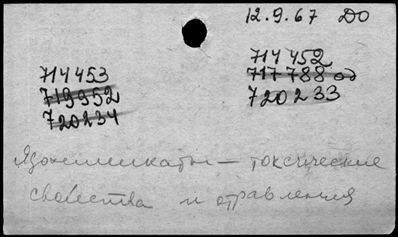 12.9.67 DO
714453
719952
720234
714452
717788 од
720233
Ядохимикаты — токсические
свойства и отравления